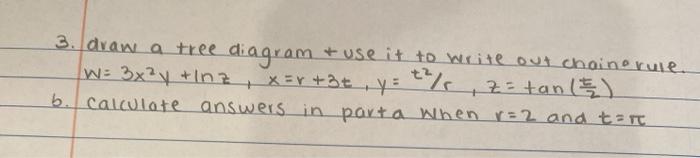 3. draw a tree diagram + use it to write out chaine rule.
W = 3x²y + ln z , x = r + 3t , y = t²/r , z = tan(t/2)
b. calculate answers in part a when r = 2 and t = π